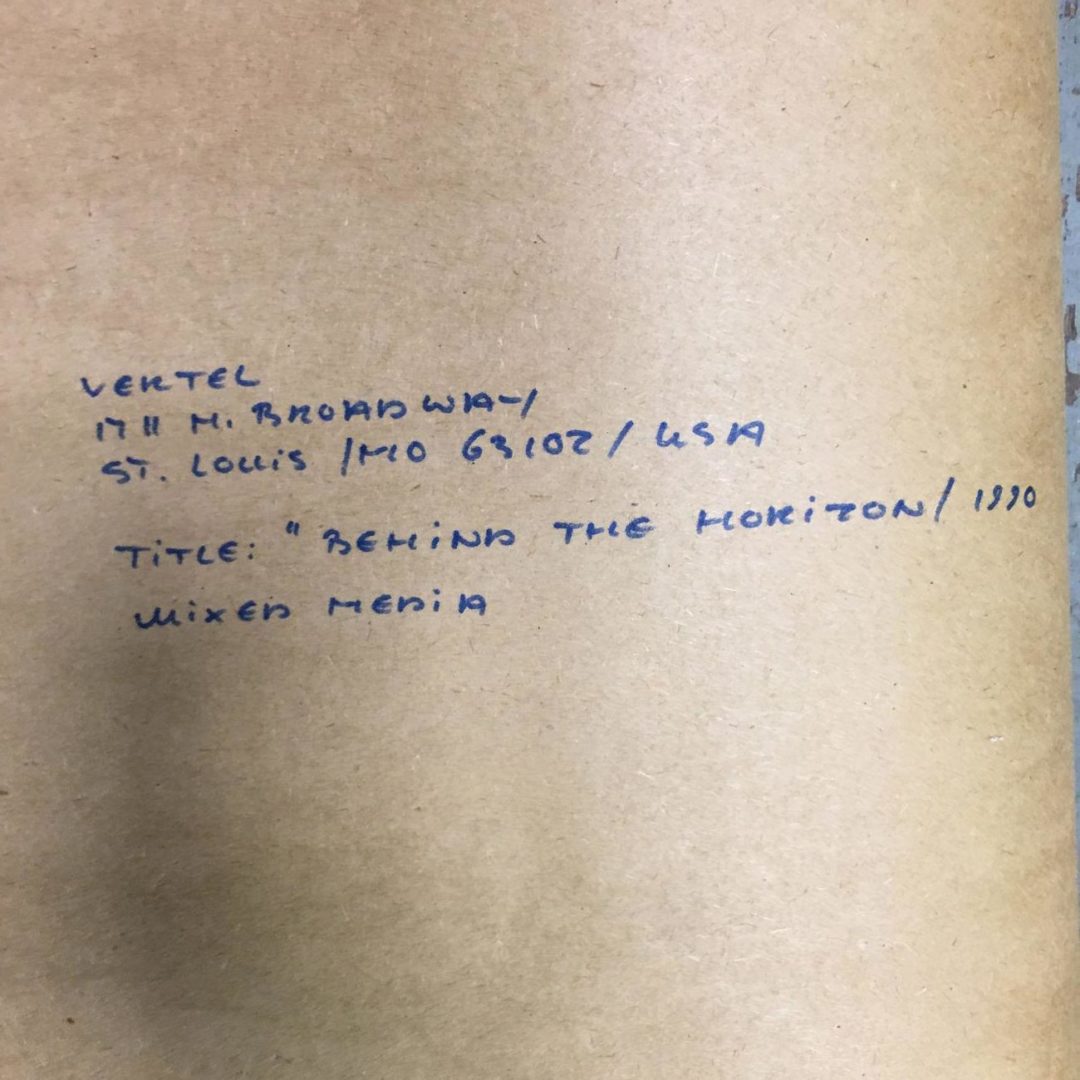 VERTEL
1711 N. BROADWAY
ST. LOUIS /MO 63102 / USA
TITLE: "BEHIND THE HORIZON / 1990
MIXED MEDIA